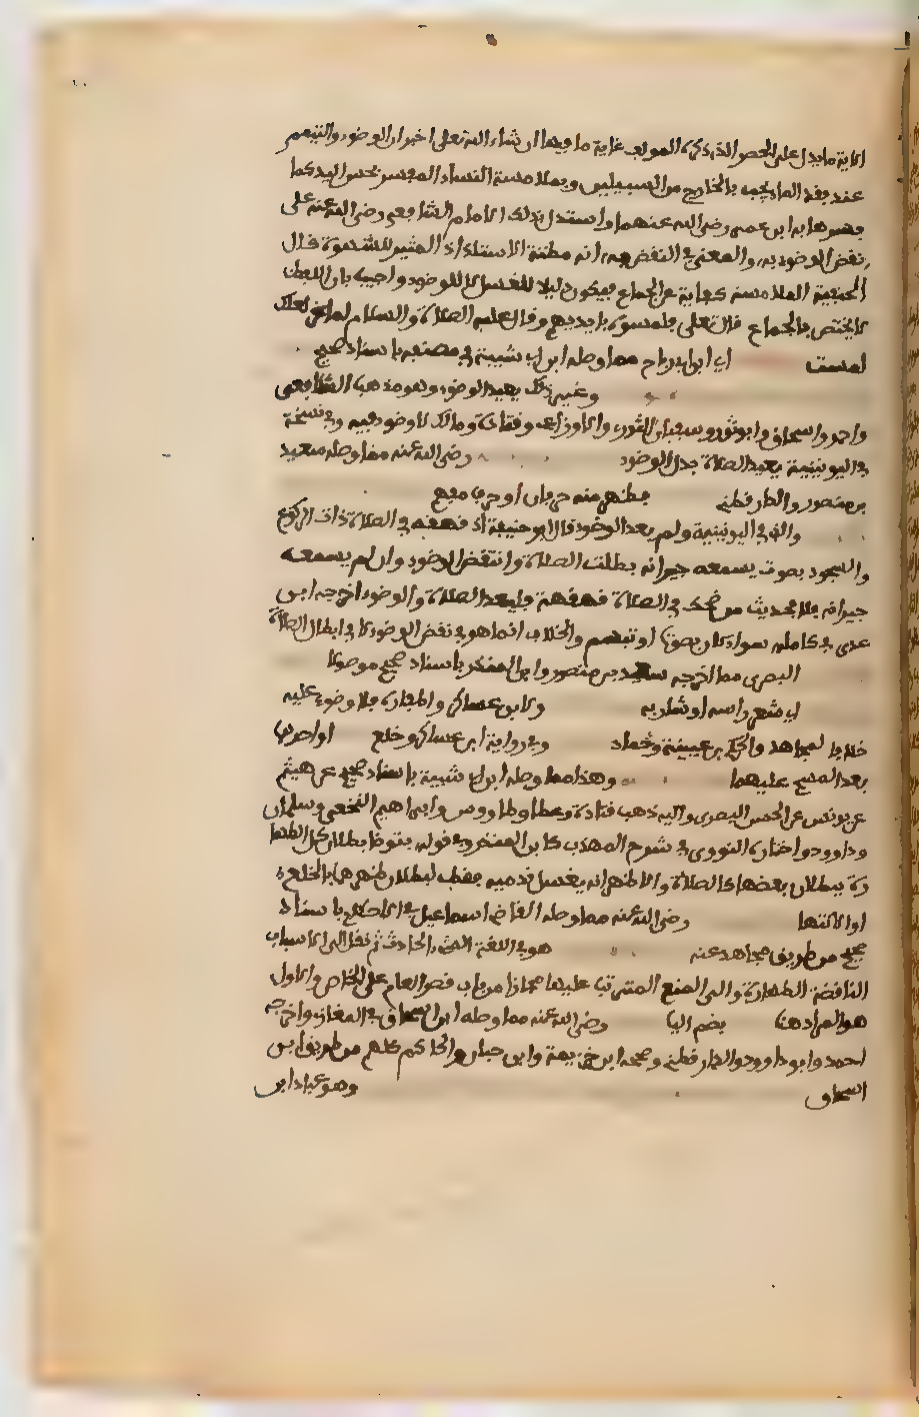 الاية ما يدل على الحصر الذي ذكره المولف غاية ما فيها ان شاء الله تعلى اخبر ان الوضوء والتيمم
عند فقد الماء يجب بالخارج من السبيلين وبملامسة النساء المفسر بجس اليد كما
فسرها به ابن عمر رضي الله عنهما واستدل بذلك الامام الشافعي رضي الله عنه على
نقض الوضوء به والمعنى في النقض به انه مظنة الاستلذاذ المثير للشهوة قال
الحنفية الملامسة كناية عن الجماع فيكون دليلا للغسل لا للوضوء واجيب بان اللفظ
لا يختص بالجماع قال تعلى فلمسوه بايديهم وقال عليه الصلاة والسلام لماعز لعلك
لمست اي ابن ابي رباح مما وصله ابن ابي شيبة في مصنفه باسناد صحيح
وغير ذلك يعيد الوضوء وهو مذهب الشافعي
واحمد واسحاق وابو ثور وسفيان الثوري والاوزاعي وقتادة ومالك لا وضوء فيه وفي نسخة
في اليونينية يعيد الصلاة بدل الوضوء رضي الله عنه مما وصله سعيد
بن منصور والدارقطني
والذي في اليونينية ولم يعد الوضوء قال ابو حنيفة اذا قهقه في الصلاة ذات الركوع
والسجود بصوت يسمعه جيرانه بطلت الصلاة وانتقض الوضوء وان لم يسمعه
جيرانه فلا لحديث من ضحك في الصلاة قهقهة فليعد الصلاة والوضوء اخرجه ابن
عدي في كامله سواء كان بصوت او تبسم والخلاف انما هو في نقض الوضوء لا في ابطال الصلاة
البصري مما اخرجه سعيد بن منصور وابن المنذر باسناد صحيح موصولا
اي شعر راسه او شاربه ولابن عساكر واظفاره فلا وضوء عليه
خلافا لمجاهد والحكم بن عيينة وحماد وفي رواية ابن عساكر وخلع او احدهما
بعد المسح عليهما وهذا مما وصله ابن ابي شيبة باسناد صحيح عن هشيم
عن يونس عن الحسن البصري واليه ذهب قتادة وعطا وطاووس وابراهيم النخعي وسليمان
وداوود واختاره النووي في شرح المهذب كابن المنذر وفي قول يتوضا لبطلان كل الطها
رة ببطلان بعضها كالصلاة والاظهر انه يغسل قدميه فقط لبطلان طهرهما بالخلع
او الانتها رضي الله عنه مما وصله القاضي اسماعيل في الاحكام باسناد
صحيح من طريق مجاهد عنه هو في اللغة الشيء الحادث ثم نقل الى الاسباب
الناقضة الطهارة والى المنع المترتب عليها مجازا من باب قصر العام على الخاص والاول
هو المراد هنا بضم اليا رضي الله عنه مما وصله ابن اسحاق في المغازي واخرجه
احمد وابو داوود والدارقطني وصححه ابن خزيمة وابن حبان والحاكم كلهم من طريق ابن
اسحاق وهو عباد ابن